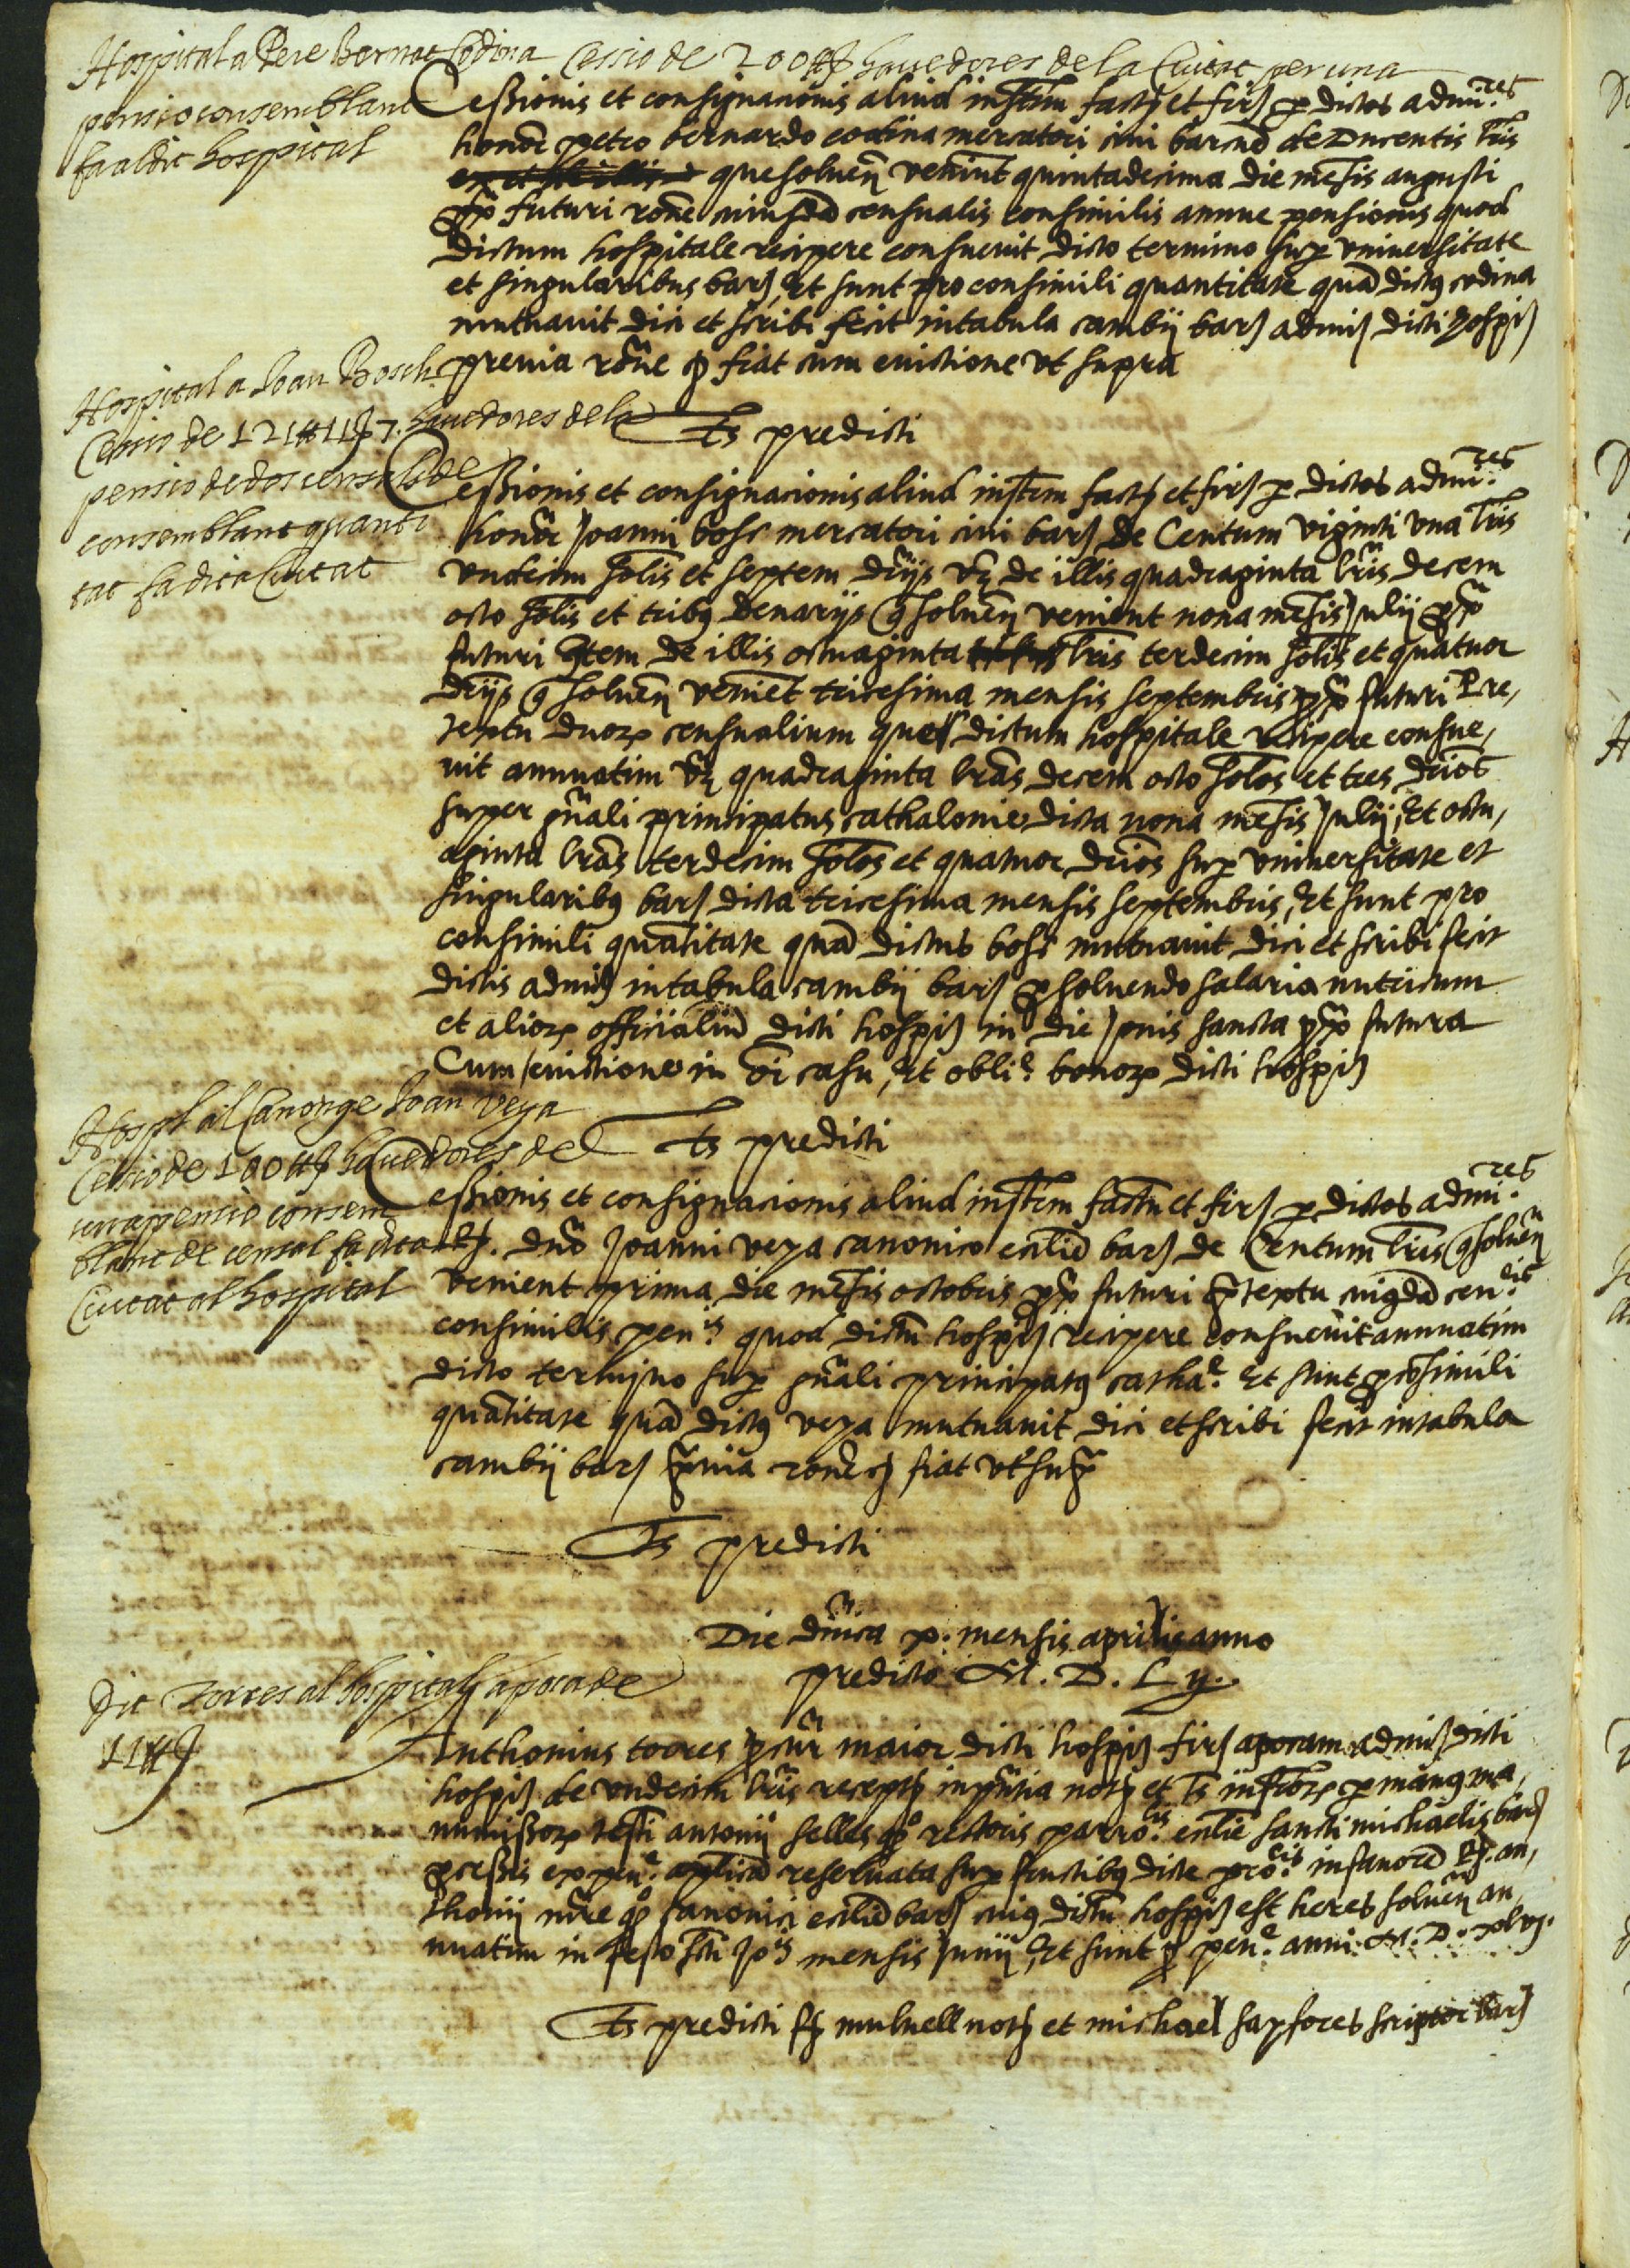 Hospital a Pere Bernat Codina Cessio de 200 ħ hauedores de la Ciutat per una
pensio consemblant
fa al dit hospital
Cessionis et consignationis aliud instm fact et fir p dictos admi.res
honor petro bernardo codina mercatori ciui barcne de Ducentis lris
que soluen venint quintadecima die mesis augusti
px futuri rone cuiusda censualis consimilis annue pensionis quod
dictum hospitale recipere consueuit dicto termino sup vniuersitate
et singularibus bar, Et sunt pro consimili quantitate qua dictus codina
mutuauit dici et scribi fecit in tabula cambij bar admi dicti hospi
preuia rone fiat cum euictione vt supra
Hospital a Joan Bosch
Cessio de 121 ħ 11 ß 7. hauedores de la
pensio de dos censals de
consemblant quanti
tat fa dita Ciutat
Ts predicti
Cessionis et consignacionis aliud instm fact et fir p dictos admi.res
honor Joanni bosc mercatori ciui bar de Centum viginti vna lris
vndecim solis et septem drijs vz de illis quadraginta lris decem
octo solis et tribus denarijs q soluen venient nona mesis Julij px
futuri Item de illis octuaginta lris terdecim solis et quatuor
drijs q soluen veniet tricesima mensis septembris px futuri Pre,
textu duor censualium que dictum hospitale recipere consue,
uit annuatim vz quadraginta lras decem octo solos et tres drios
super gnali principatus cathalonie dicta nona mesis Julij, Et octu,
aginta lras terdecim solos et quatuor drios sup vniuersitate et
singularibus bar dicta tricesima mensis septembris, Et sunt pro
consimili quatitate qua dictus bosc mutuauit dici et scribi fecit
dictis admi in tabula cambij bar p soluendo salaria nutricum
et alior officialiu dicti hospi in die Jouis sancta px futura
Cum euictione in oi casu, Et obli.e bonor dicti hospi
Hospl al Canonge Joan Veya
Cessio de 100 ħ hauedores de
una pensio consem
blant de censal fa dita
Ciutat al hospital
Ts predicti
Cessionis et consignacionis aliud instm factu et fir p dictos admi.res
R. dno Joanni veya canonico ecclie bar de Centum lris q soluen
venient prima die mesis octobris px futuri ptextu cuiusda cen.
consimilis pen.is quod dictu hospi recipere consueuit annuatim
dicto termino sup gnali principatus catha.e Et sunt p cosimili
quatitate qua dictus veya mutuauit dici et scribi fecit in tabula
cambij bar puia rone fiat vt sup
Ts predicti
Die dnica x. mensis aprilis anno
predicto M. D. L ij.
Dit Torres al hospital apoca de
11 ħ
Anthonius torres pcur maior dicti hospi fir apocam admi dicti
hospi de vndecim lris recept in pntia not et ts infror p manus ma,
numissor testi antonij selles q rectoris parro.lis ecclie sancti michaelis bar
pcessis ex pen.e reseruata sup fructibus dicte in fauore R. an,
thonij canonici ecclie bar cuius dictu hospi est heres soluen an,
nuatim in festo sti Jois mensis Junij, Et sunt p pen.e anni M. D. xlvj.
Ts predicti mulnell not et michael sapfores scriptor bar